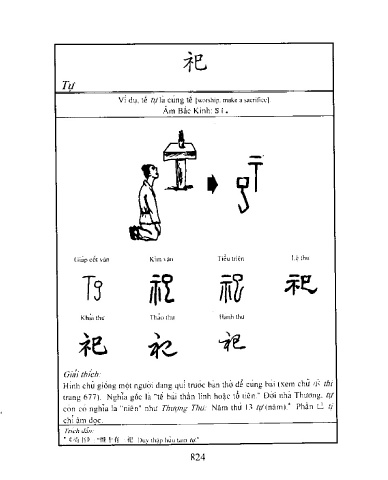 祀
Tự
Ví dụ, tế tự là cúng tế [worship, make a sacrifice]
Âm Bắc Kinh: Sì.
Giáp cốt văn Kim văn Tiểu triện Lệ thư
祀
Khải thư Thảo thư Hành thư
祀 祀 祀
Giải thích:
Hình chữ giống một người đang quì trước bàn thờ để cúng bái (xem chữ 示 thị
trang 677). Nghĩa gốc là "tế bái thần linh hoặc tổ tiên." Đời nhà Thương, tự
còn có nghĩa là "niên" như Thượng Thư: Năm thứ 13 tự (năm)." Phần 巳 tị
chỉ âm đọc.
Trích dẫn:
惟十有 祀 Duy thập hữu tam tự."
824